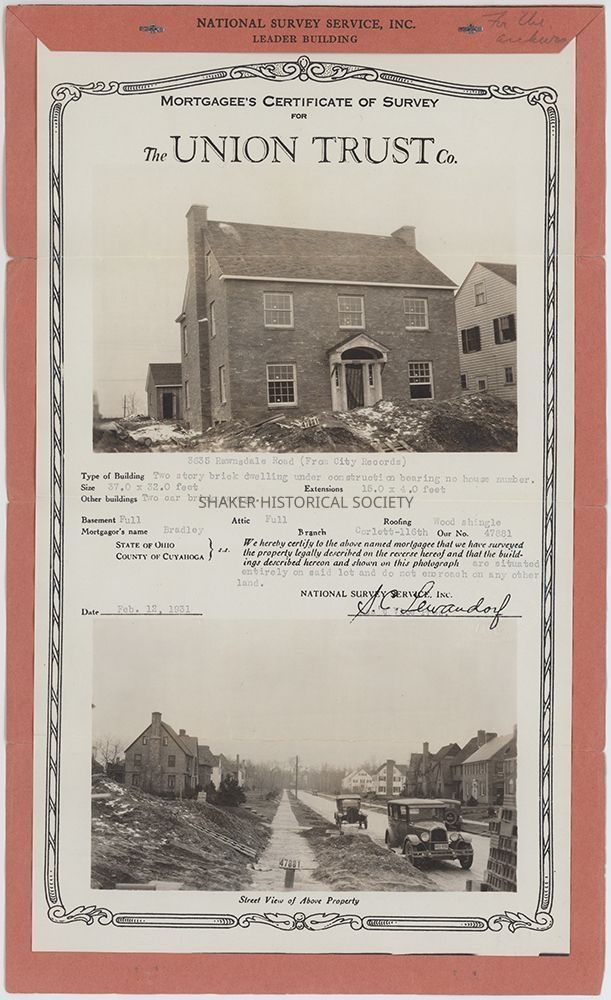 NATIONAL SURVEY SERVICE, INC.
LEADER BUILDING
For the
archives
MORTGAGEE'S CERTIFICATE OF SURVEY
FOR
The UNION TRUST Co.
47881
3635 Rawnsdale Road (From City Records)
Type of Building Two story brick dwelling under construction bearing no house number.
Size 37.0 x 32.0 feet Extensions 15.0 x 4.0 feet
Other buildings Two car
SHAKER HISTORICAL SOCIETY
Basement Full Attic Full Roofing Wood shingle
Mortgagor's name Bradley Branch Corlett-116th Our No. 47881
STATE OF OHIO
COUNTY OF CUYAHOGA } s.s.
We hereby certify to the above named mortgagee that we have surveyed
the property legally described on the reverse hereof and that the build-
ings described hereon and shown on this photograph are situated
entirely on said lot and do not encroach on any other
land.
NATIONAL SURVEY SERVICE, INC.
Date Feb. 12, 1931
47881
Street View of Above Property